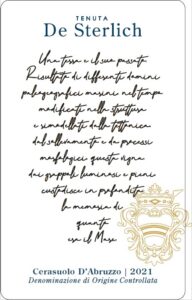 TENUTA
De Sterlich
Una terra e il suo passato
Risultato di differenti domini
paleogeografici marini nel tempo
modificato nella struttura
e rimodellato dalla tettonica
dal sollevamento e da processi
morfologici questa vigna
dai grappoli luminosi e pieni
custodisce in profondità
la memoria di
quando
era il Mare
Cerasuolo D'Abruzzo | 2021
Denominazione di Origine Controllata